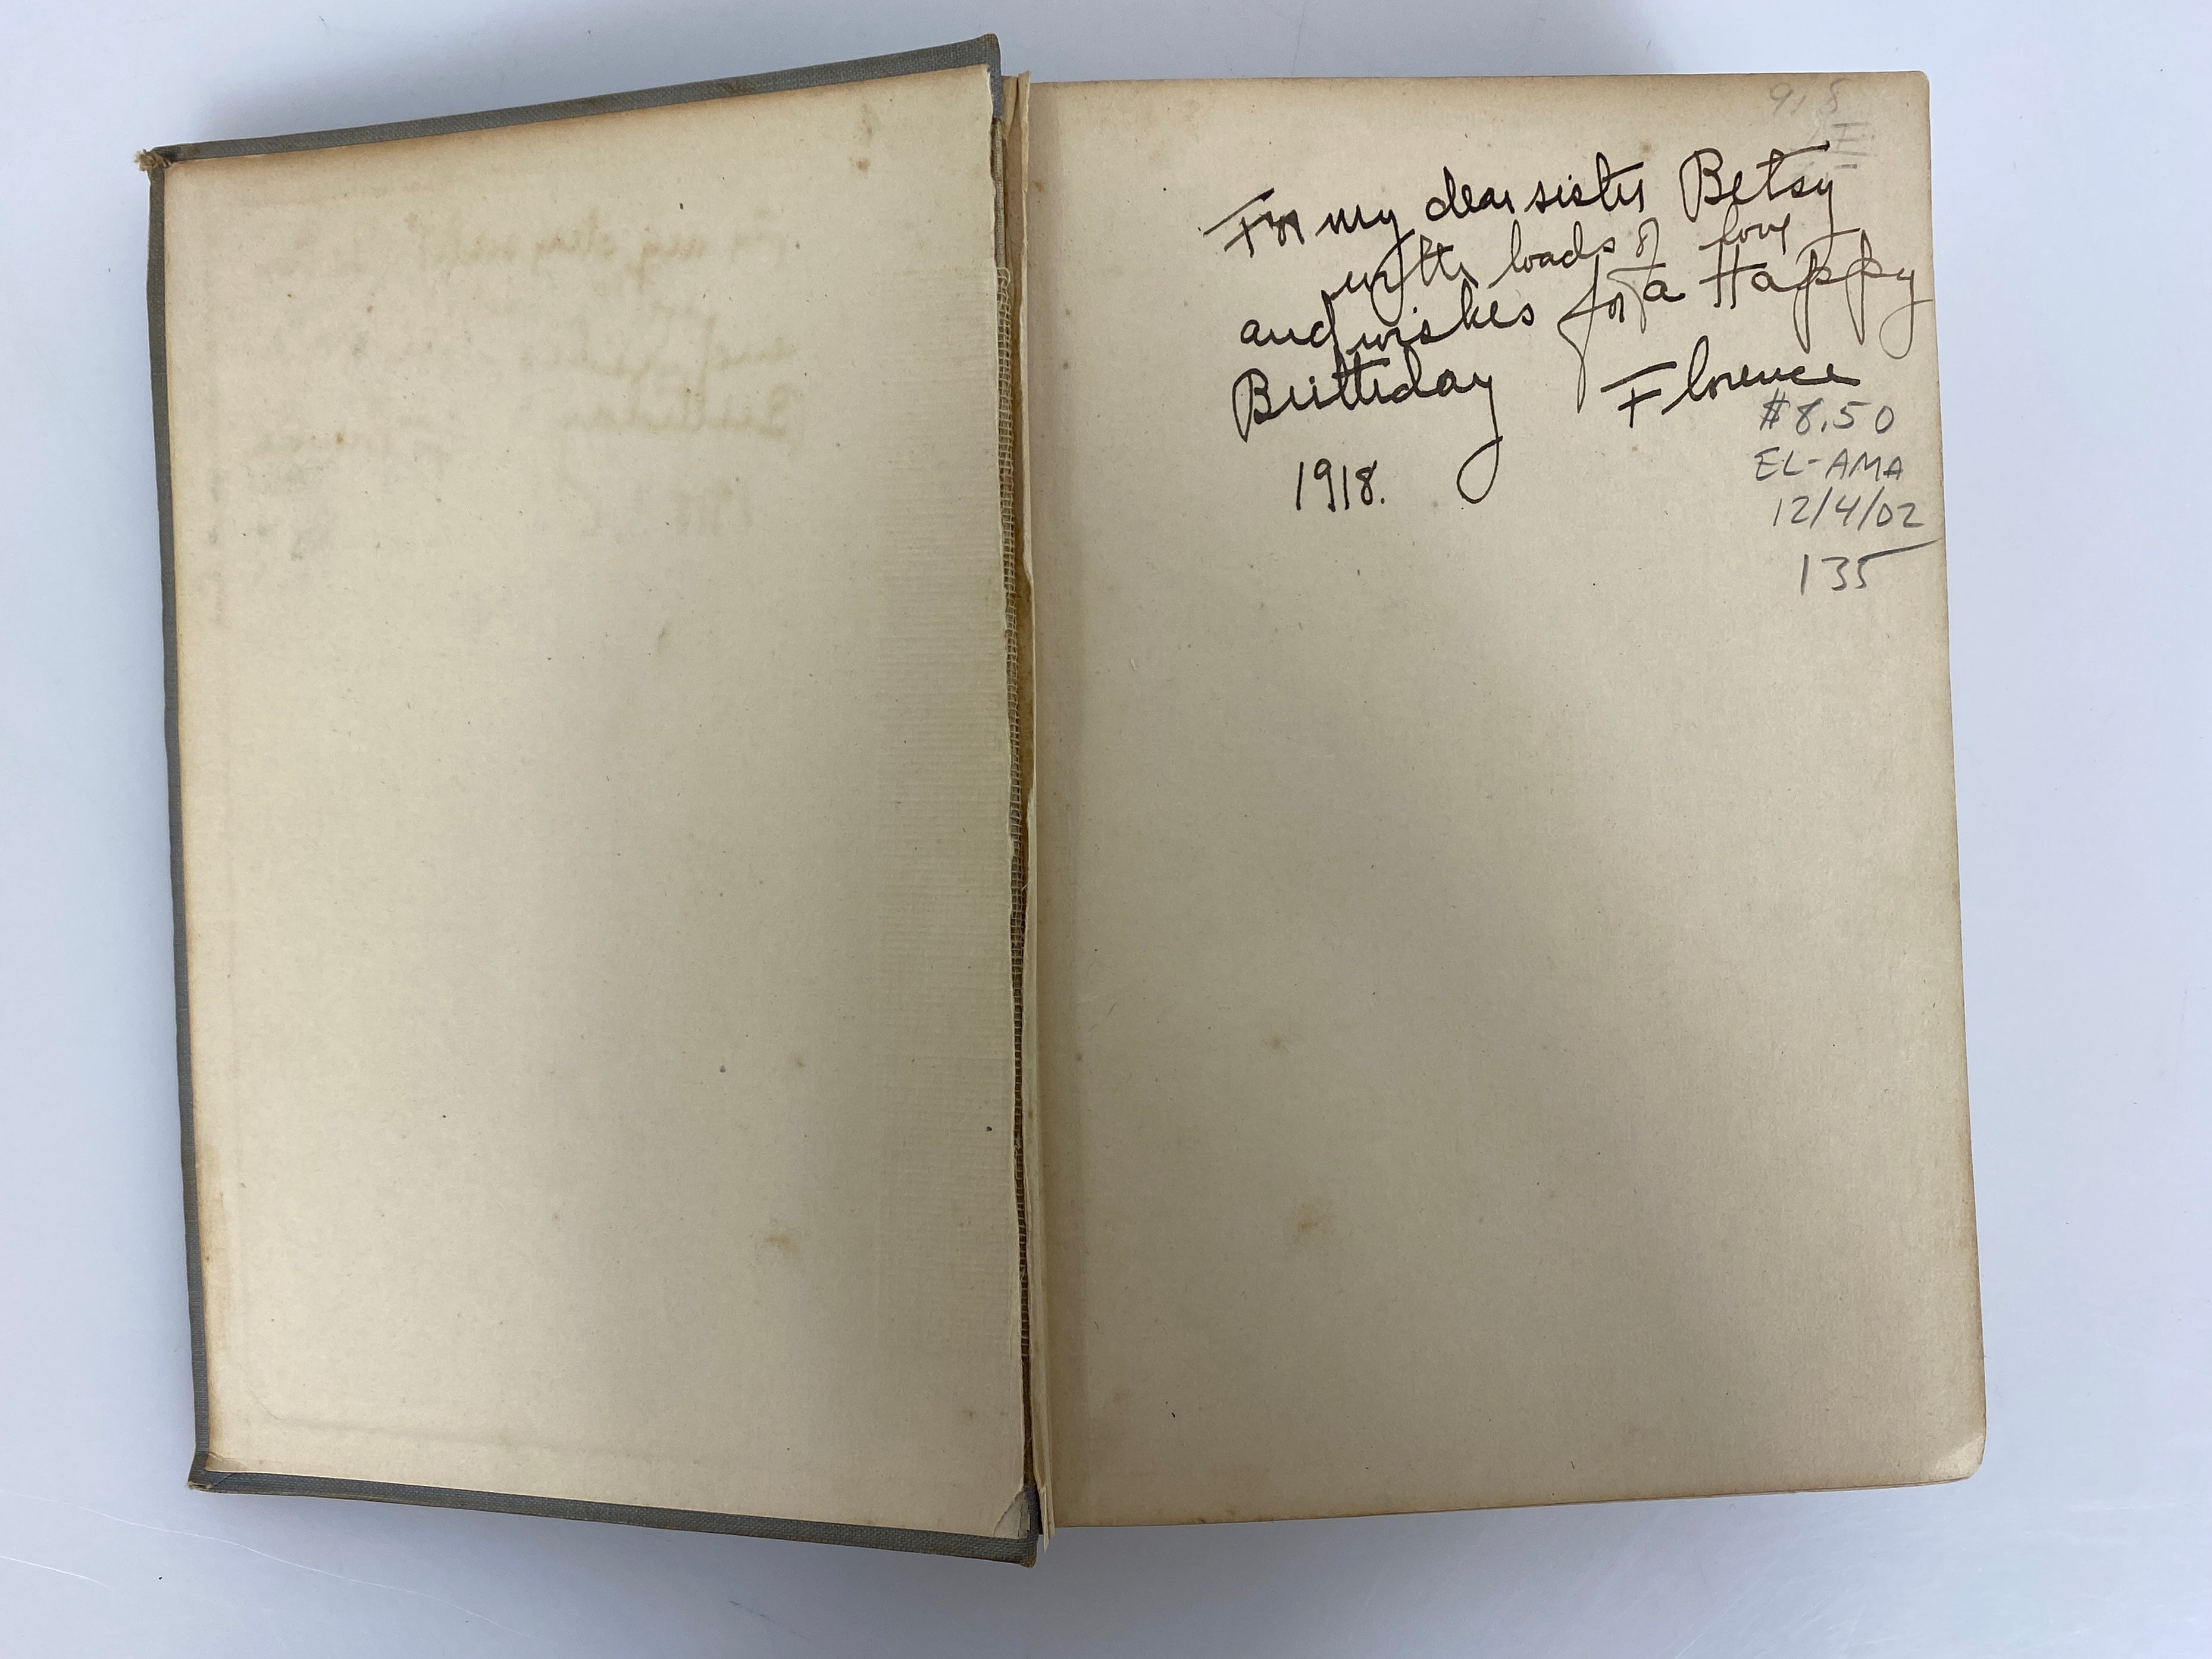 For my dear sister Betsy
with loads of love
and wishes for a Happy
Birthday Florence
1918.
$8.50
EL-AMA
12/4/02
135